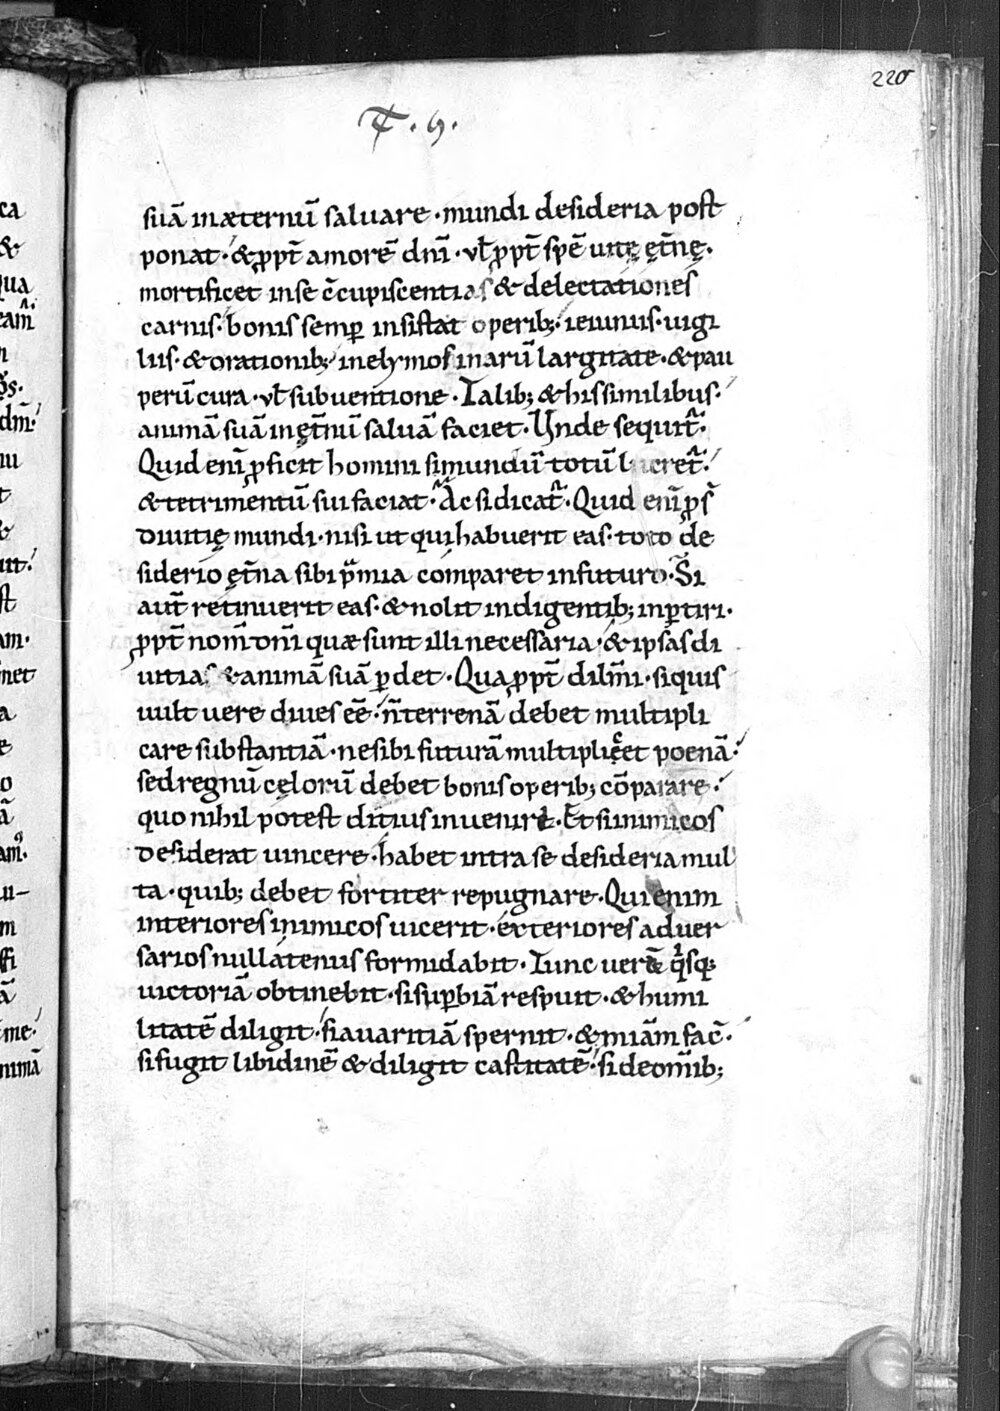 220
T. 9.
suā inæternū saluare · mundi desideria post
ponat · & ꝓpt̄ amorē dn̄i · vl̄ ꝓpt̄ spē uitę ęt̄nę ·
mortificet inse c̄cupiscentias & delectationes
carnis · bonis semp̄ insistat operib; · ieiuniis · uigi
liis · & orationib; · inelymosinarū largitate · & pau
perū cura · vl̄ subuentione · Talib; & his similibus ·
animā suā inęt̄nū saluā faciet · Vnde sequit᷑ ·
Quid eni ꝓficit homini simundū totū lucret᷑ ·
& tetrimentū sui faciat · Ac si dicat᷑ · Quid eni ꝓs̄
diuitię mundi · nisi ut qui habuerit eas · toto de
siderio ęt̄na sibi p̄mia comparet infuturo · Si
aut̄ retinuerit eas · & nolit indigentib; inp̄tiri ·
ꝓpt̄ nom̄ dn̄i quæ sunt illi necessaria · & ipsas di
uitias & animā suā ꝑdet · Quaꝓpt̄ dilm̄i · siquis
uult uere diues eē · n̄ terrenā debet multipli
care substantiā · ne sibi futurā multiplicet poenā ·
sed regnū cęlorū debet bonis operib; cōparare ·
quo nihil potest ditius inuenire · Et si inimicos
desiderat uincere · habet intra se desideria mul
ta · quib; debet fortiter repugnare · Qui enim
interiores inimicos uicerit · exteriores aduer
sarios nullatenus formidabit · Tunc uerę q̄sq;
uictoriā obtinebit · si supbiā respuit · & humi
litatē diligit · si auaritiā spernit · & miām fac̄ ·
si fugit libidinē & diligit castitatē · si deom̄ib;